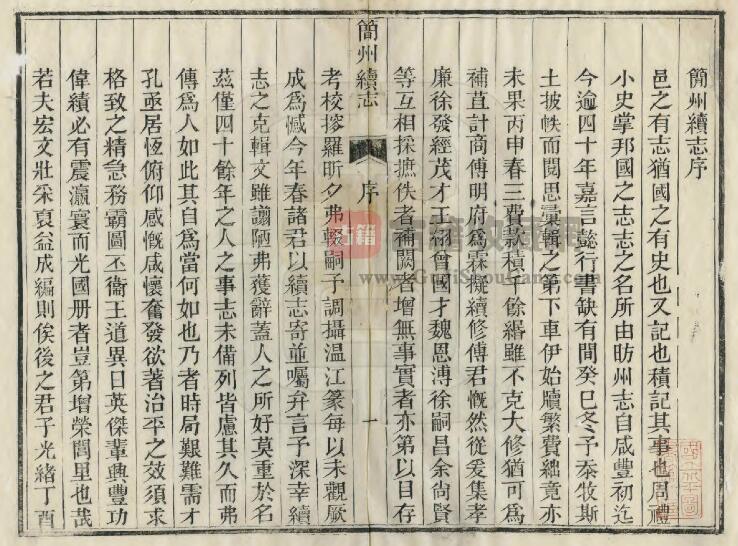 簡州續志序
邑之有志猶國之有史也又記也積記其事也周禮
小史掌邦國之志志之名所由昉州志自咸豐初迄
今逾四十年嘉言懿行書缺有間癸巳冬予忝牧斯
土披帙而閱思彙輯之第下車伊始牘繁費絀竟亦
未果丙申春三費款積千餘緡雖不克大修猶可為
補苴計商傅明府為霖擬續修傅君慨然從爰集孝
廉徐發經茂才王 曾國才魏恩溥徐嗣昌余尚賢
等互相採摭佚者補闕者增無事實者亦第以目存
簡州續志
序
一
考校搜羅昕夕弗輟嗣予調攝溫江篆每以未觀厥
成為憾今年春諸君以續志寄並囑弁言予深幸續
志之克輯文雖譾陋弗獲辭蓋人之所好莫重於名
茲僅四十餘年之人之事志未備列皆慮其久而弗
傳為人如此其自為當何如也乃者時局艱難需才
孔亟居恆俯仰感慨咸懷奮發欲著治平之效須求
格致之精急務霸圖丕衞王道異日英傑輩興豐功
偉績必有震瀛寰而光國册者豈第增榮閭里也哉
若夫宏文壯采裒益成編則俟後之君子光緒丁酉
古籍
www.GujiShouCang.com